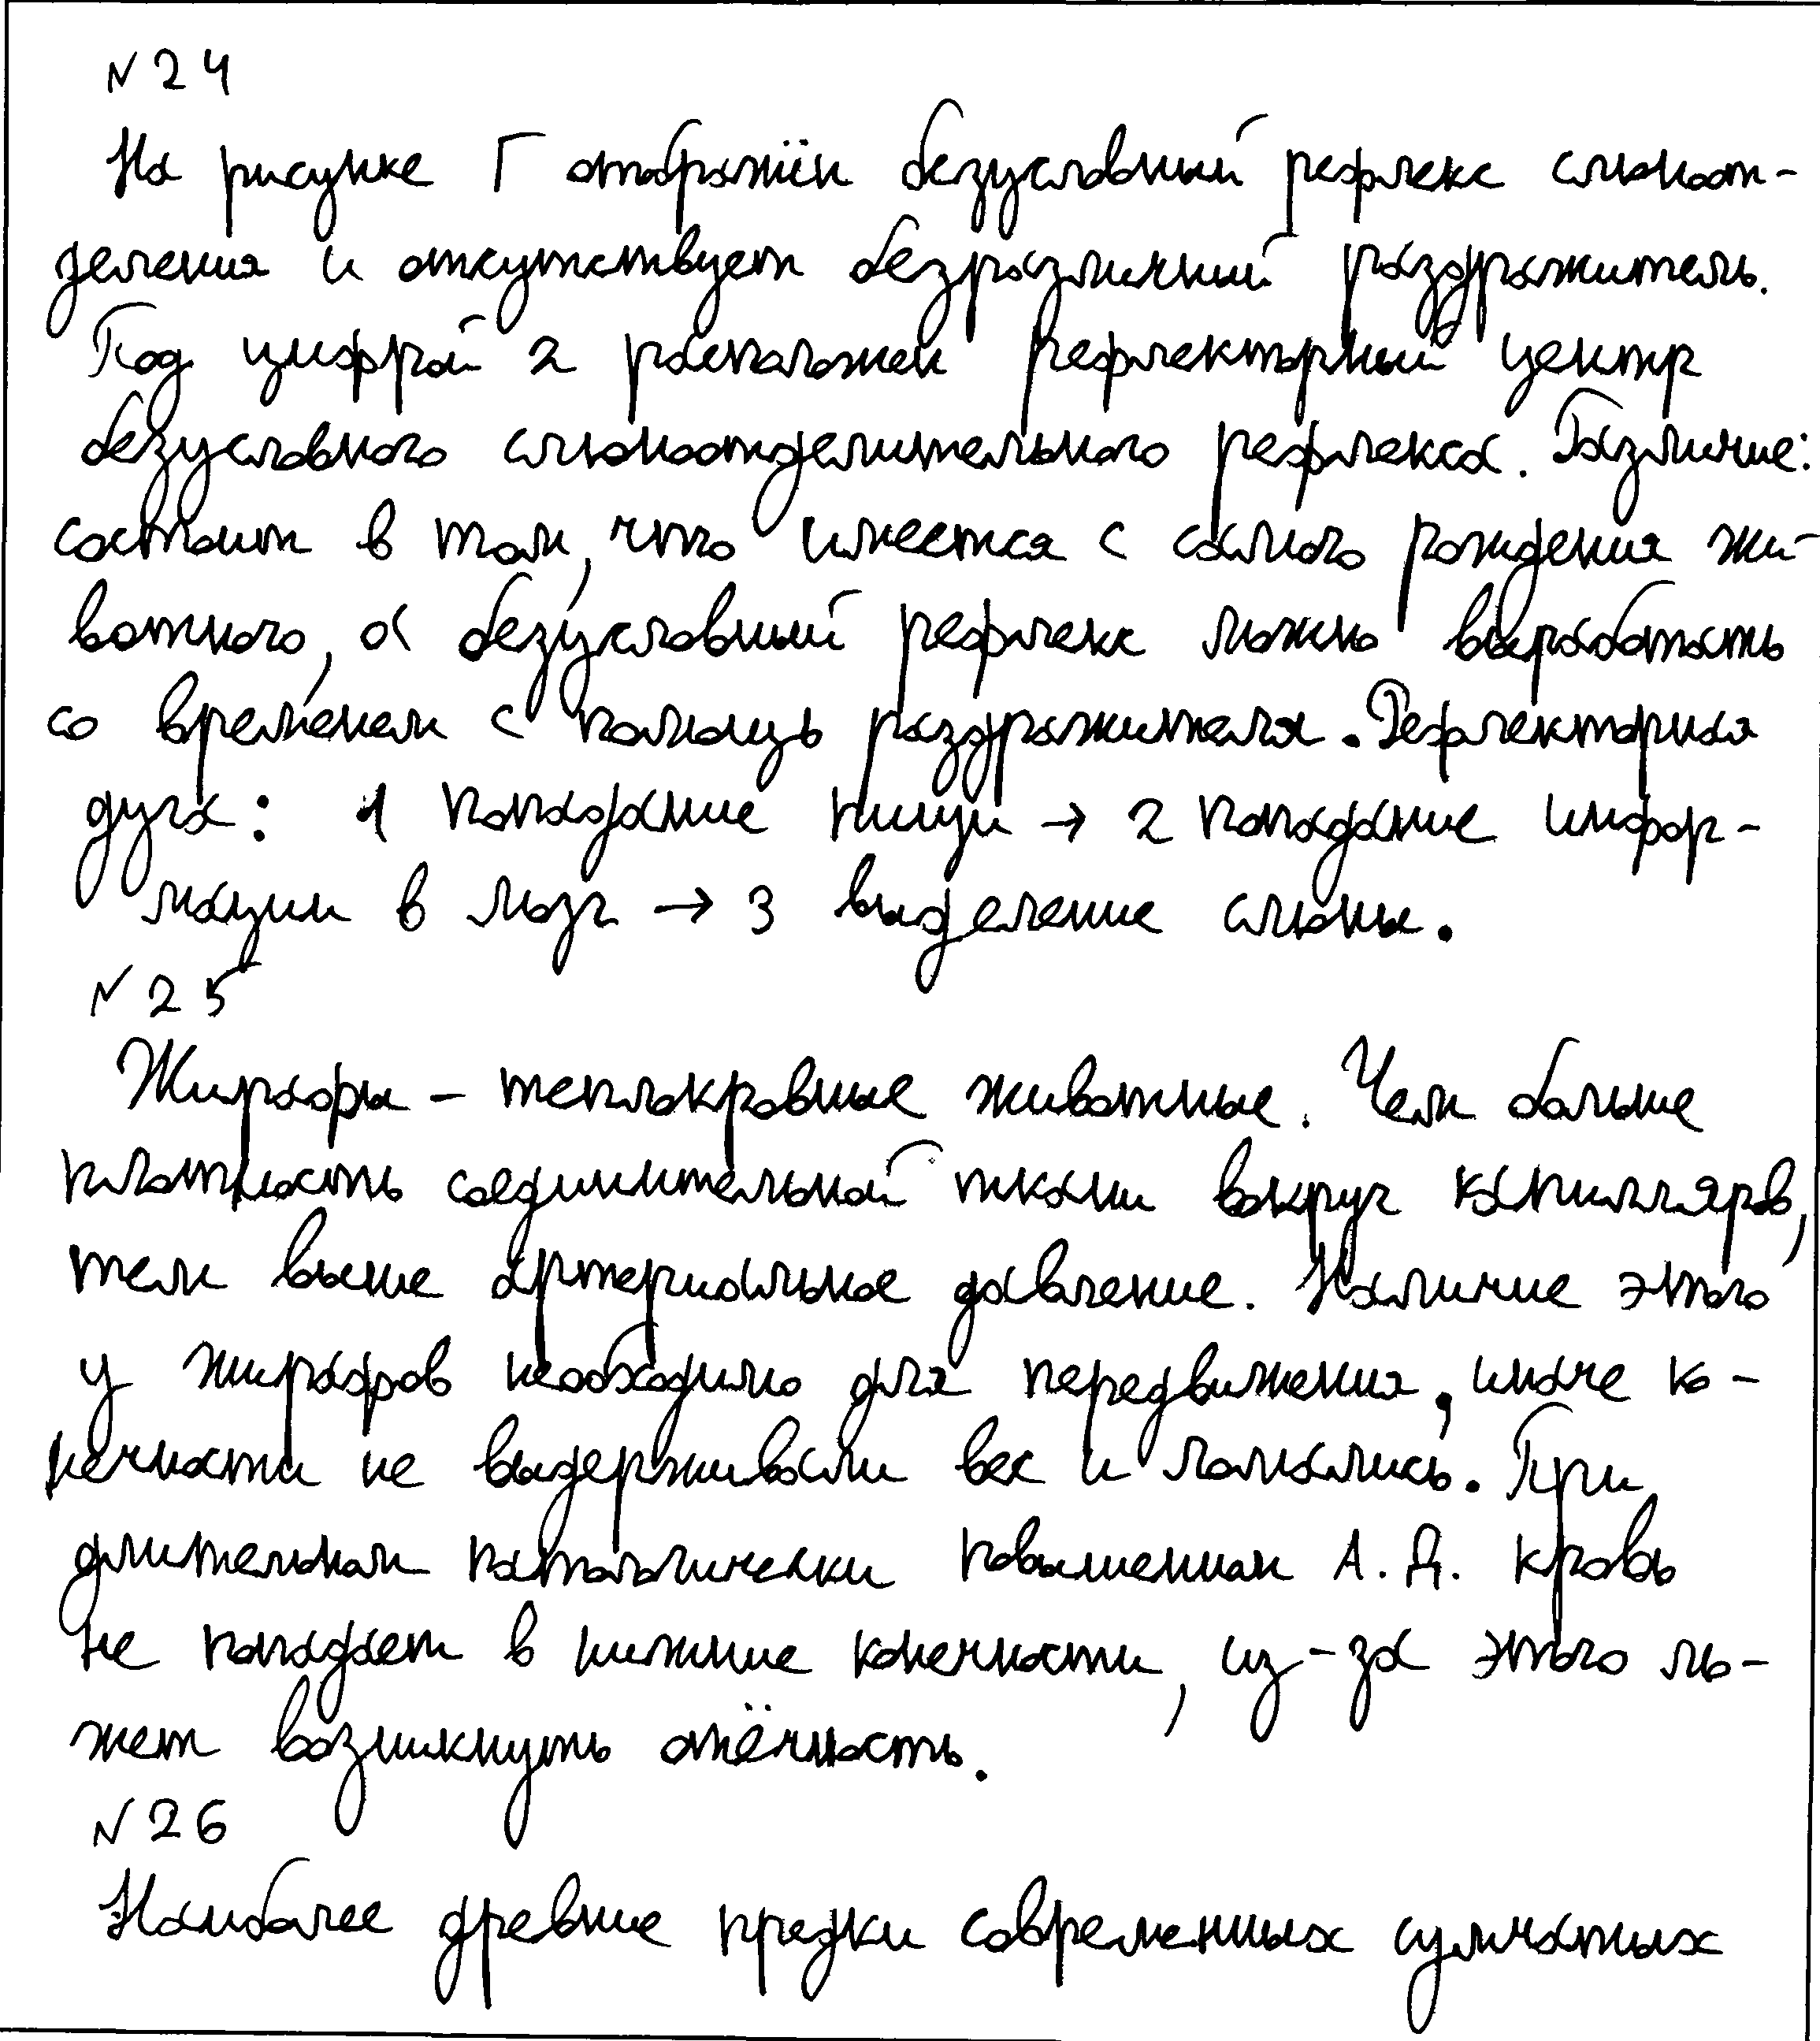 № 24
На рисунке Г отображён безусловный рефлекс слюноот-
деления и отсутствует безразличный раздражитель.
Под цифрой 2 расположен рефлекторный центр
безусловного слюноотделительного рефлекса. Различие:
состоит в том, что имеется с самого рождения жи-
вотного, а безусловный рефлекс можно выработать
со временем с помощь раздражителя. Рефлекторная
дуга: 1 попадание пищи → 2 попадание инфор-
мации в мозг → 3 выделение слюны.
№ 25
Жирафы - теплокровные животные. Чем больше
плотность соединительной ткани вокруг капилляров,
тем выше артериальное давление. Наличие этого
у жирафов необходимо для передвижения, иначе ко-
нечности не выдерживали вес и ломались. При
длительном патологически повышенном А.Д. кровь
не попадает в нижние конечности, из-за этого мо-
жет возникнуть отёчность.
№ 26
Наиболее древние предки современных сумчатых